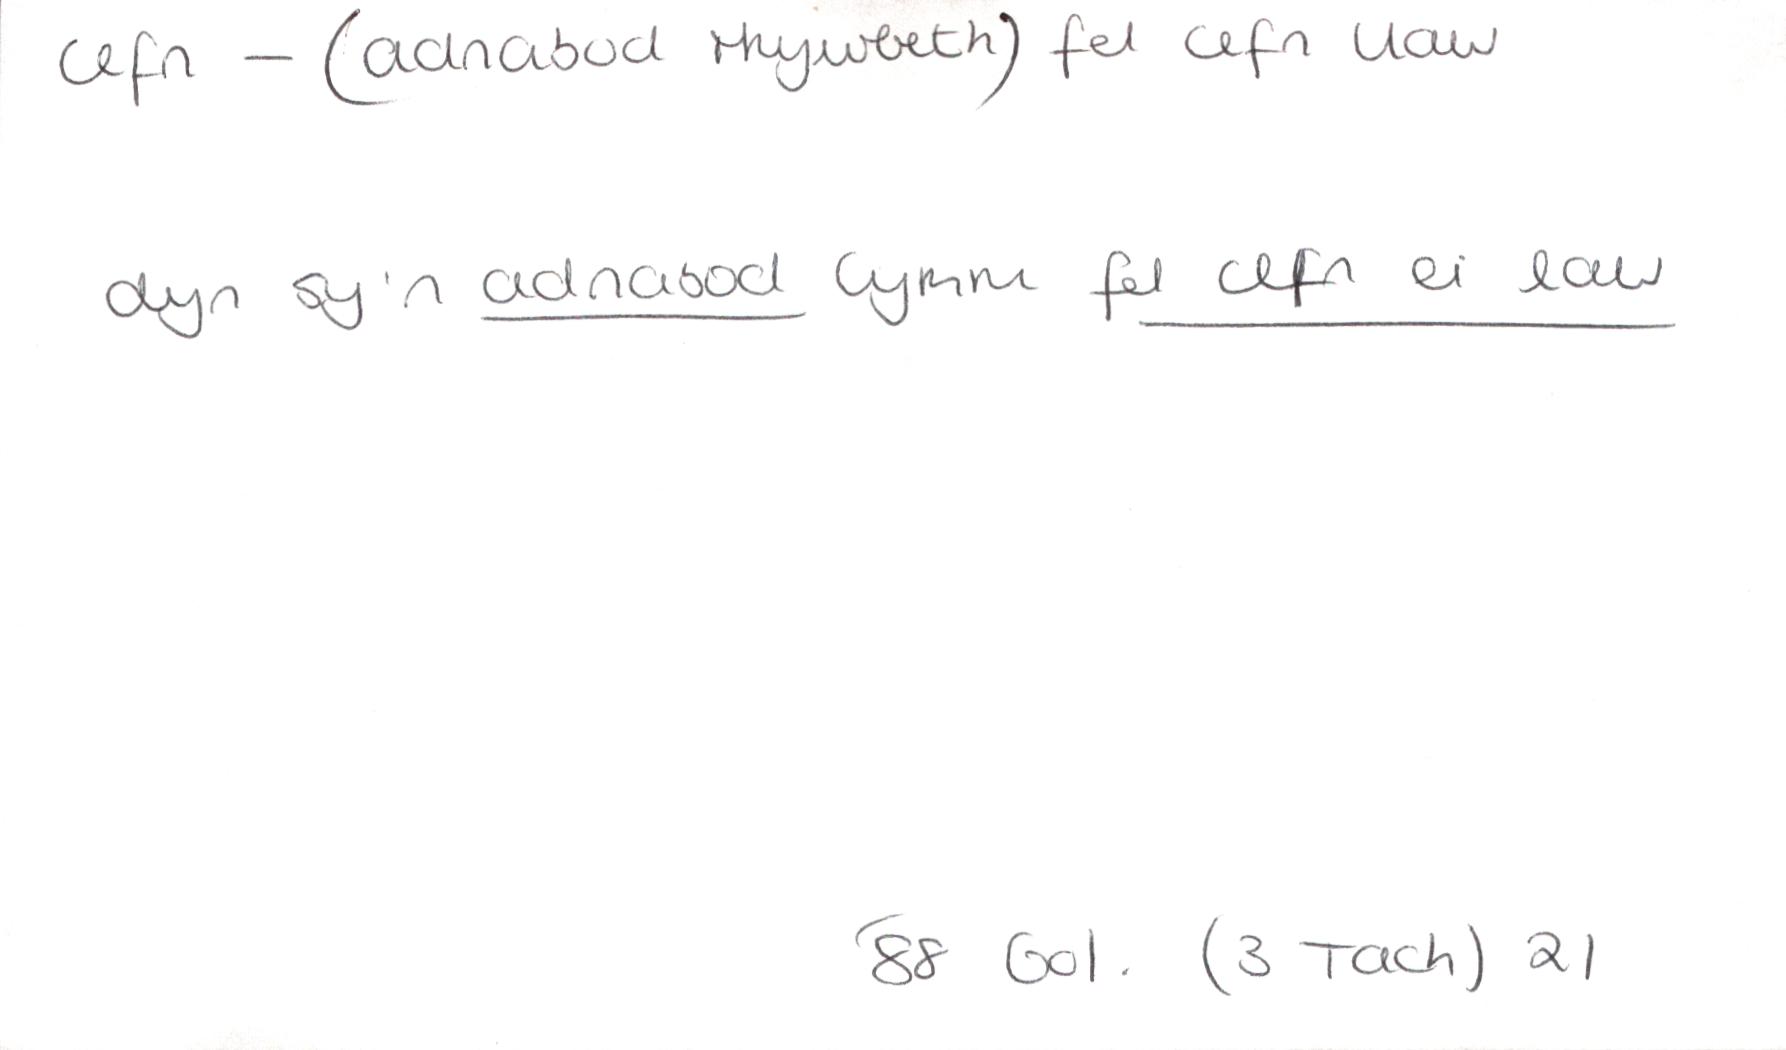 cefn – (adnabod rhywbeth) fel cefn llaw
dyn sy'n adnabod Cymru fel cefn ei law
88 Gol. (3 Tach) 21